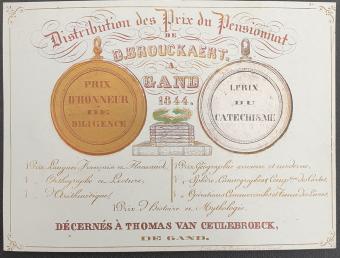 Distribution des Prix du Pensionnat
DE
D. BROUCKAERT.
A
GAND
1844.
PRIX
D'HONNEUR
DE
DILIGENCE
1. PRIX
DU
CATECHISME
1 Prix Langues Française et Flamande,
1 „ Orthographe et Lecture,
1 „ d'Arithmétique,
1 Prix Géographie ancienne et moderne,
1 „ Sphère, Cosmographie et des Cartes,
1 „ Opérations Commerciales et Tenue des Livres,
1 Prix d'Histoire et Mythologie.
DÉCERNÉS À THOMAS VAN CEULEBROECK,
DE GAND.